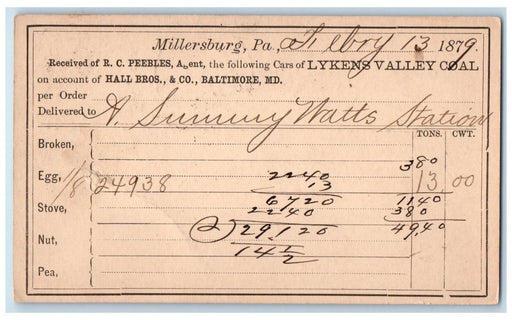 Millersburg, Pa., Feby 13 1879.
Received of R. C. PEEBLES, Agent, the following Cars of LYKENS VALLEY COAL
on account of HALL BROS., & CO., BALTIMORE, MD.
per Order
Delivered to A Summy Watts Station
TONS. CWT.
Broken,
380
Egg, 1/8 24938 2240 13.00
13
6720 1140
Stove, 2240 380
2) 29.120 49,40
Nut,
14 1/2
Pea,